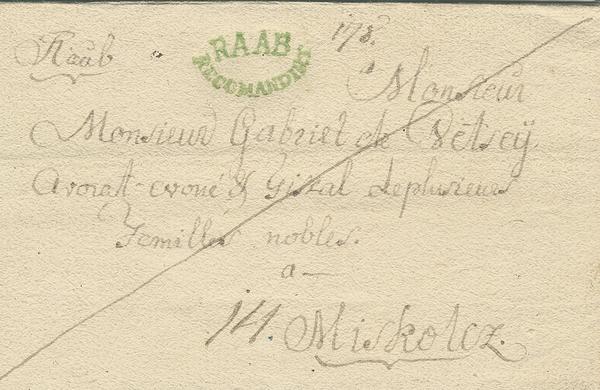 Raab
RAAB
RECOMANDIRT
178.
a Monsieur
Monsieur Gabriel de Vètseÿ
Avocat-avoué & Fiscal de plusieurs
Familles nobles.
a —
14. Miskolcz.